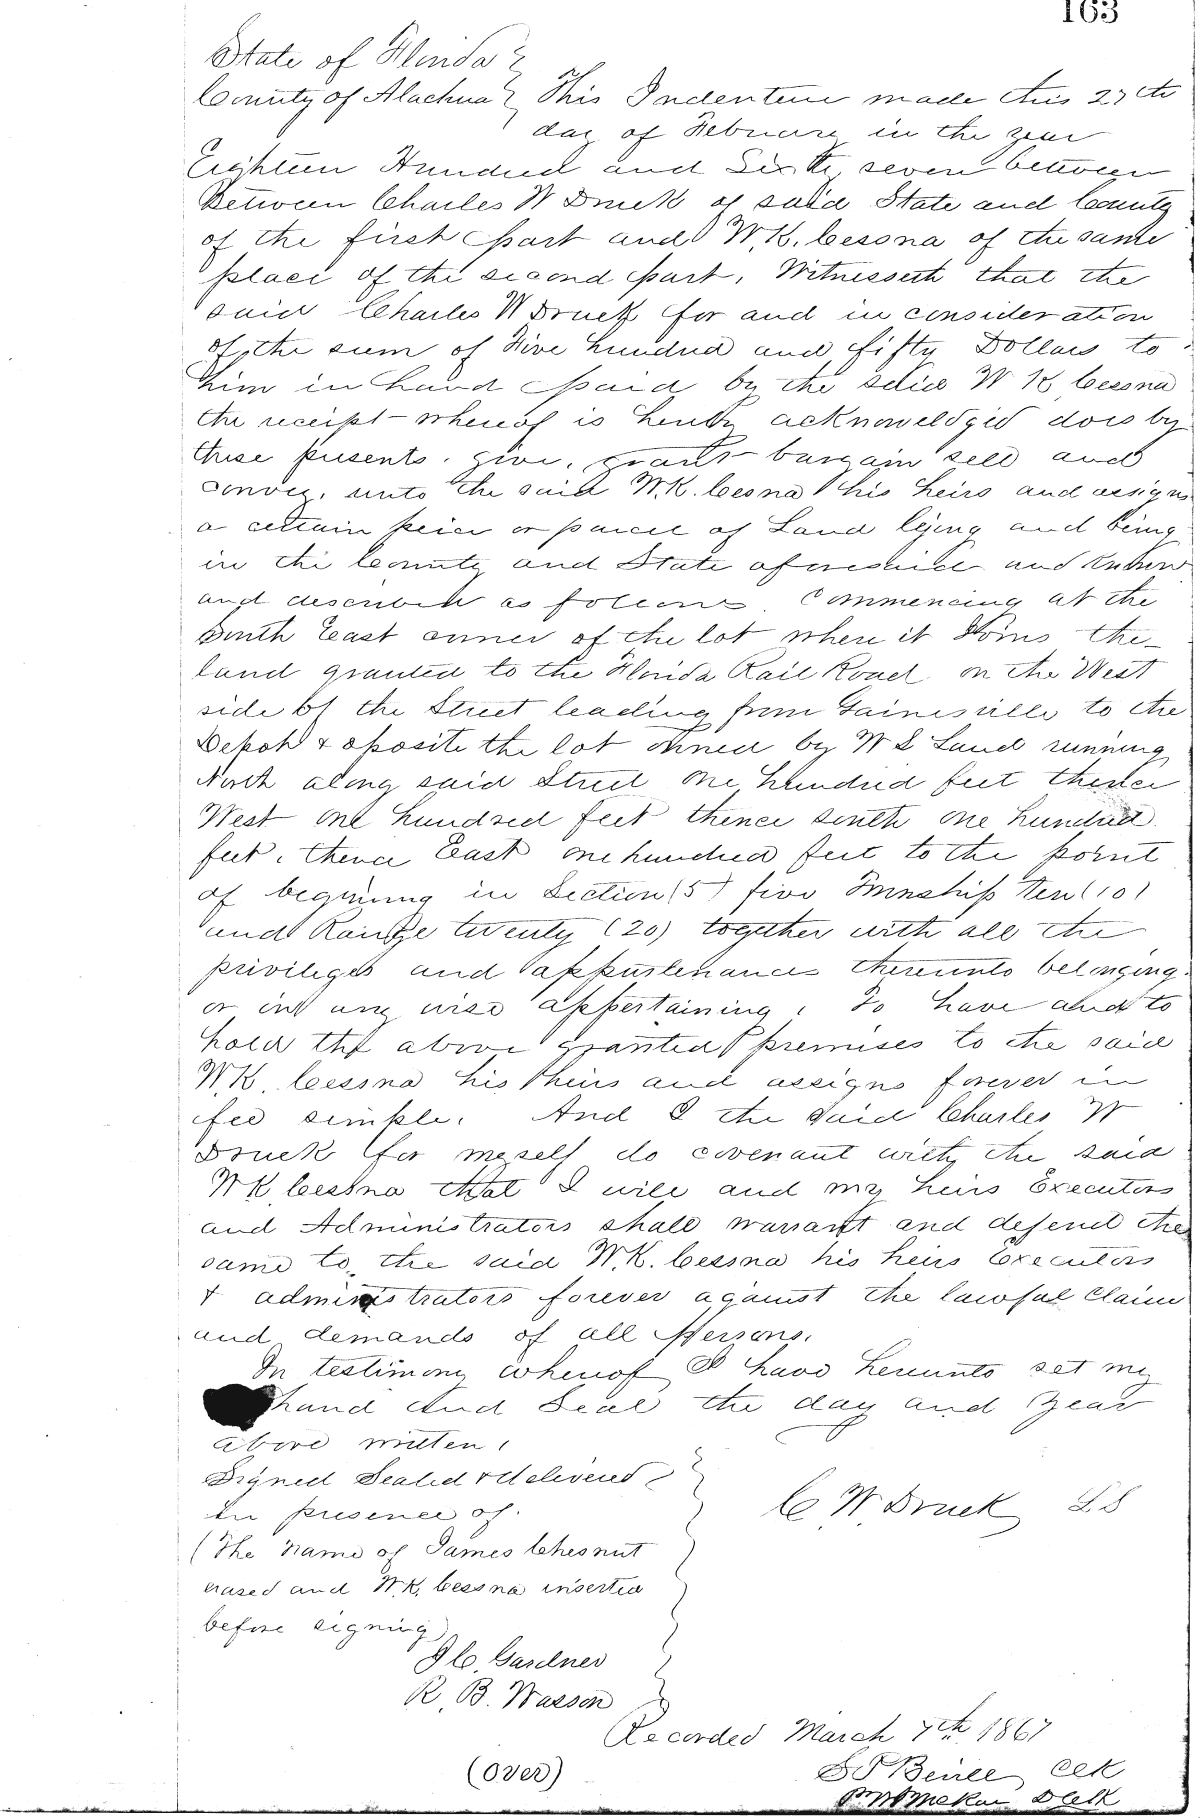 163
State of Florida
County of Alachua This Indenture made this 27th
day of February in the year
Eighteen Hundred and Sixty seven between
Between Charles W Druck of said State and County
of the first part and W.K. Cessna of the same
place of the second part, Witnesseth that the
said Charles W Druck for and in consideration
of the sum of Five hundred and fifty Dollars to
him in hand paid by the said W K Cessna
the receipt whereof is hereby acknoweldged does by
these presents, give, grant bargain sell and
convey, unto the said W.K. Cessna his heirs and assigns
a certain peice or parcel of Land lying and being
in the County and State aforesaid and known
and described as follows. Commencing at the
South East corner of the lot where it Joins the
land granted to the Florida Rail Road on the West
side of the Street leading from Gainesville to the
Depot & oposite the lot owned by W S Land running
North along said Street one hundred feet thence
West one hundred feet thence south one hundred
feet, thence East one hundred feet to the point
of begining in Section (5) five Township Ten (10)
and Range twenty (20) together with all the
privileges and appurtenances thereunto belonging
or in any wise appertaining, To have and to
hold the above granted premises to the said
W.K. Cessna his heirs and assigns forever in
fee simple. And I the said Charles W
Druck for myself do covenant with the said
W K Cessna that I will and my heirs Executors
and Administrators shall warrant and defend the
same to the said W.K. Cessna his heirs Executors
& administrators forever against the lawful claims
and demands of all Persons.
In testimony whereof I have hereunto set my
hand and Seal the day and year
above written,
Signed Sealed & delivered
in presence of.
C W Druck LS
(The name of James Chesnut
erased and W.K. Cessna inserted
before signing)
J C. Gardner
R. B. Wasson
Recorded March 7th 1867
(over)
Clk
D Clk